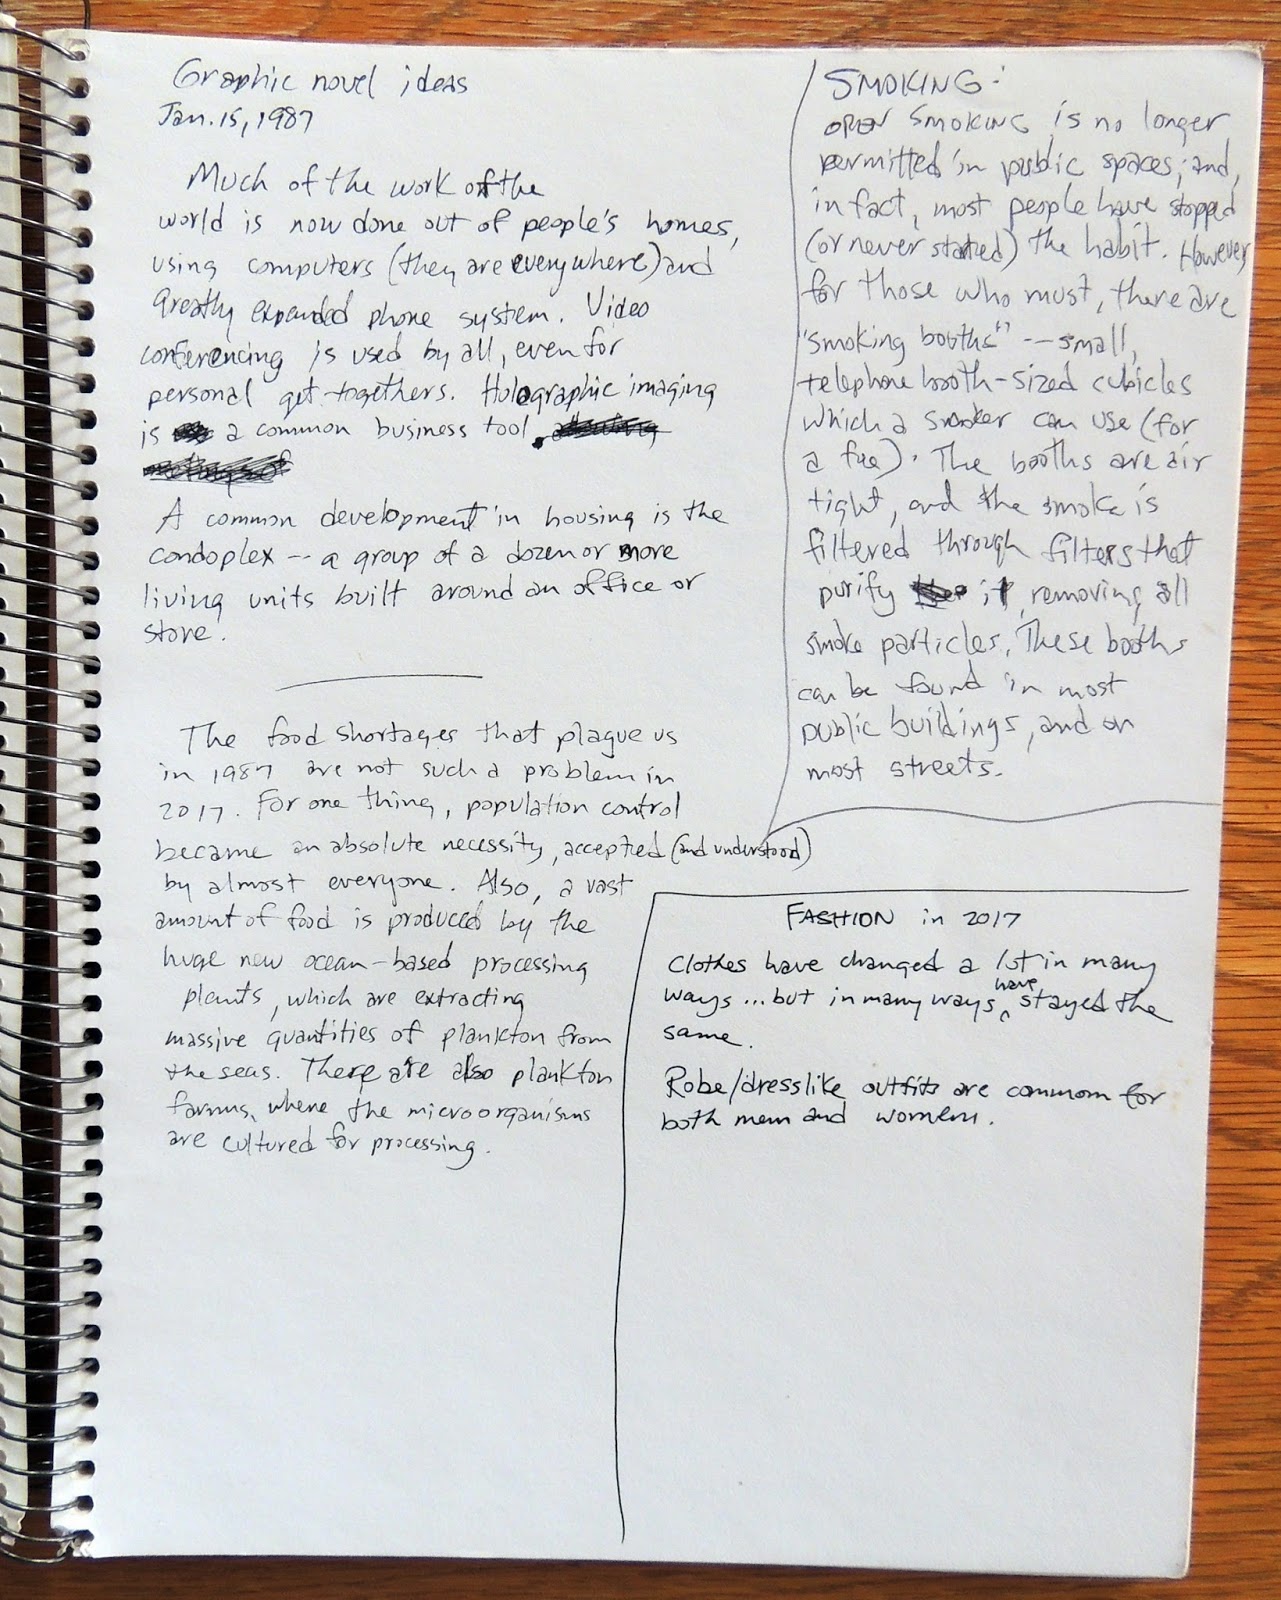 Graphic novel ideas
Jan. 15, 1987
Much of the work of the
world is now done out of people's homes,
using computers (they are everywhere) and
greatly expanded phone system. Video
conferencing is used by all, even for
personal get-togethers. Holographic imaging
is a common business tool.
A common development in housing is the
condoplex -- a group of a dozen or more
living units built around an office or
store.
The food shortages that plague us
in 1987 are not such a problem in
2017. For one thing, population control
became an absolute necessity, accepted (and understood)
by almost everyone. Also, a vast
amount of food is produced by the
huge new ocean-based processing
plants, which are extracting
massive quantities of plankton from
the seas. There are also plankton
farms, where the microorganisms
are cultured for processing.
SMOKING:
OPEN SMOKING is no longer
permitted in public spaces; and,
in fact, most people have stopped
(or never started) the habit. However,
for those who must, there are
"smoking booths" -- small,
telephone booth-sized cubicles
which a smoker can use (for
a fee). The booths are air
tight, and the smoke is
filtered through filters that
purify it, removing all
smoke particles. These booths
can be found in most
public buildings, and on
most streets.
FASHION in 2017
Clothes have changed a lot in many
ways... but in many ways have stayed the
same.
Robe/dresslike outfits are common for
both men and women.